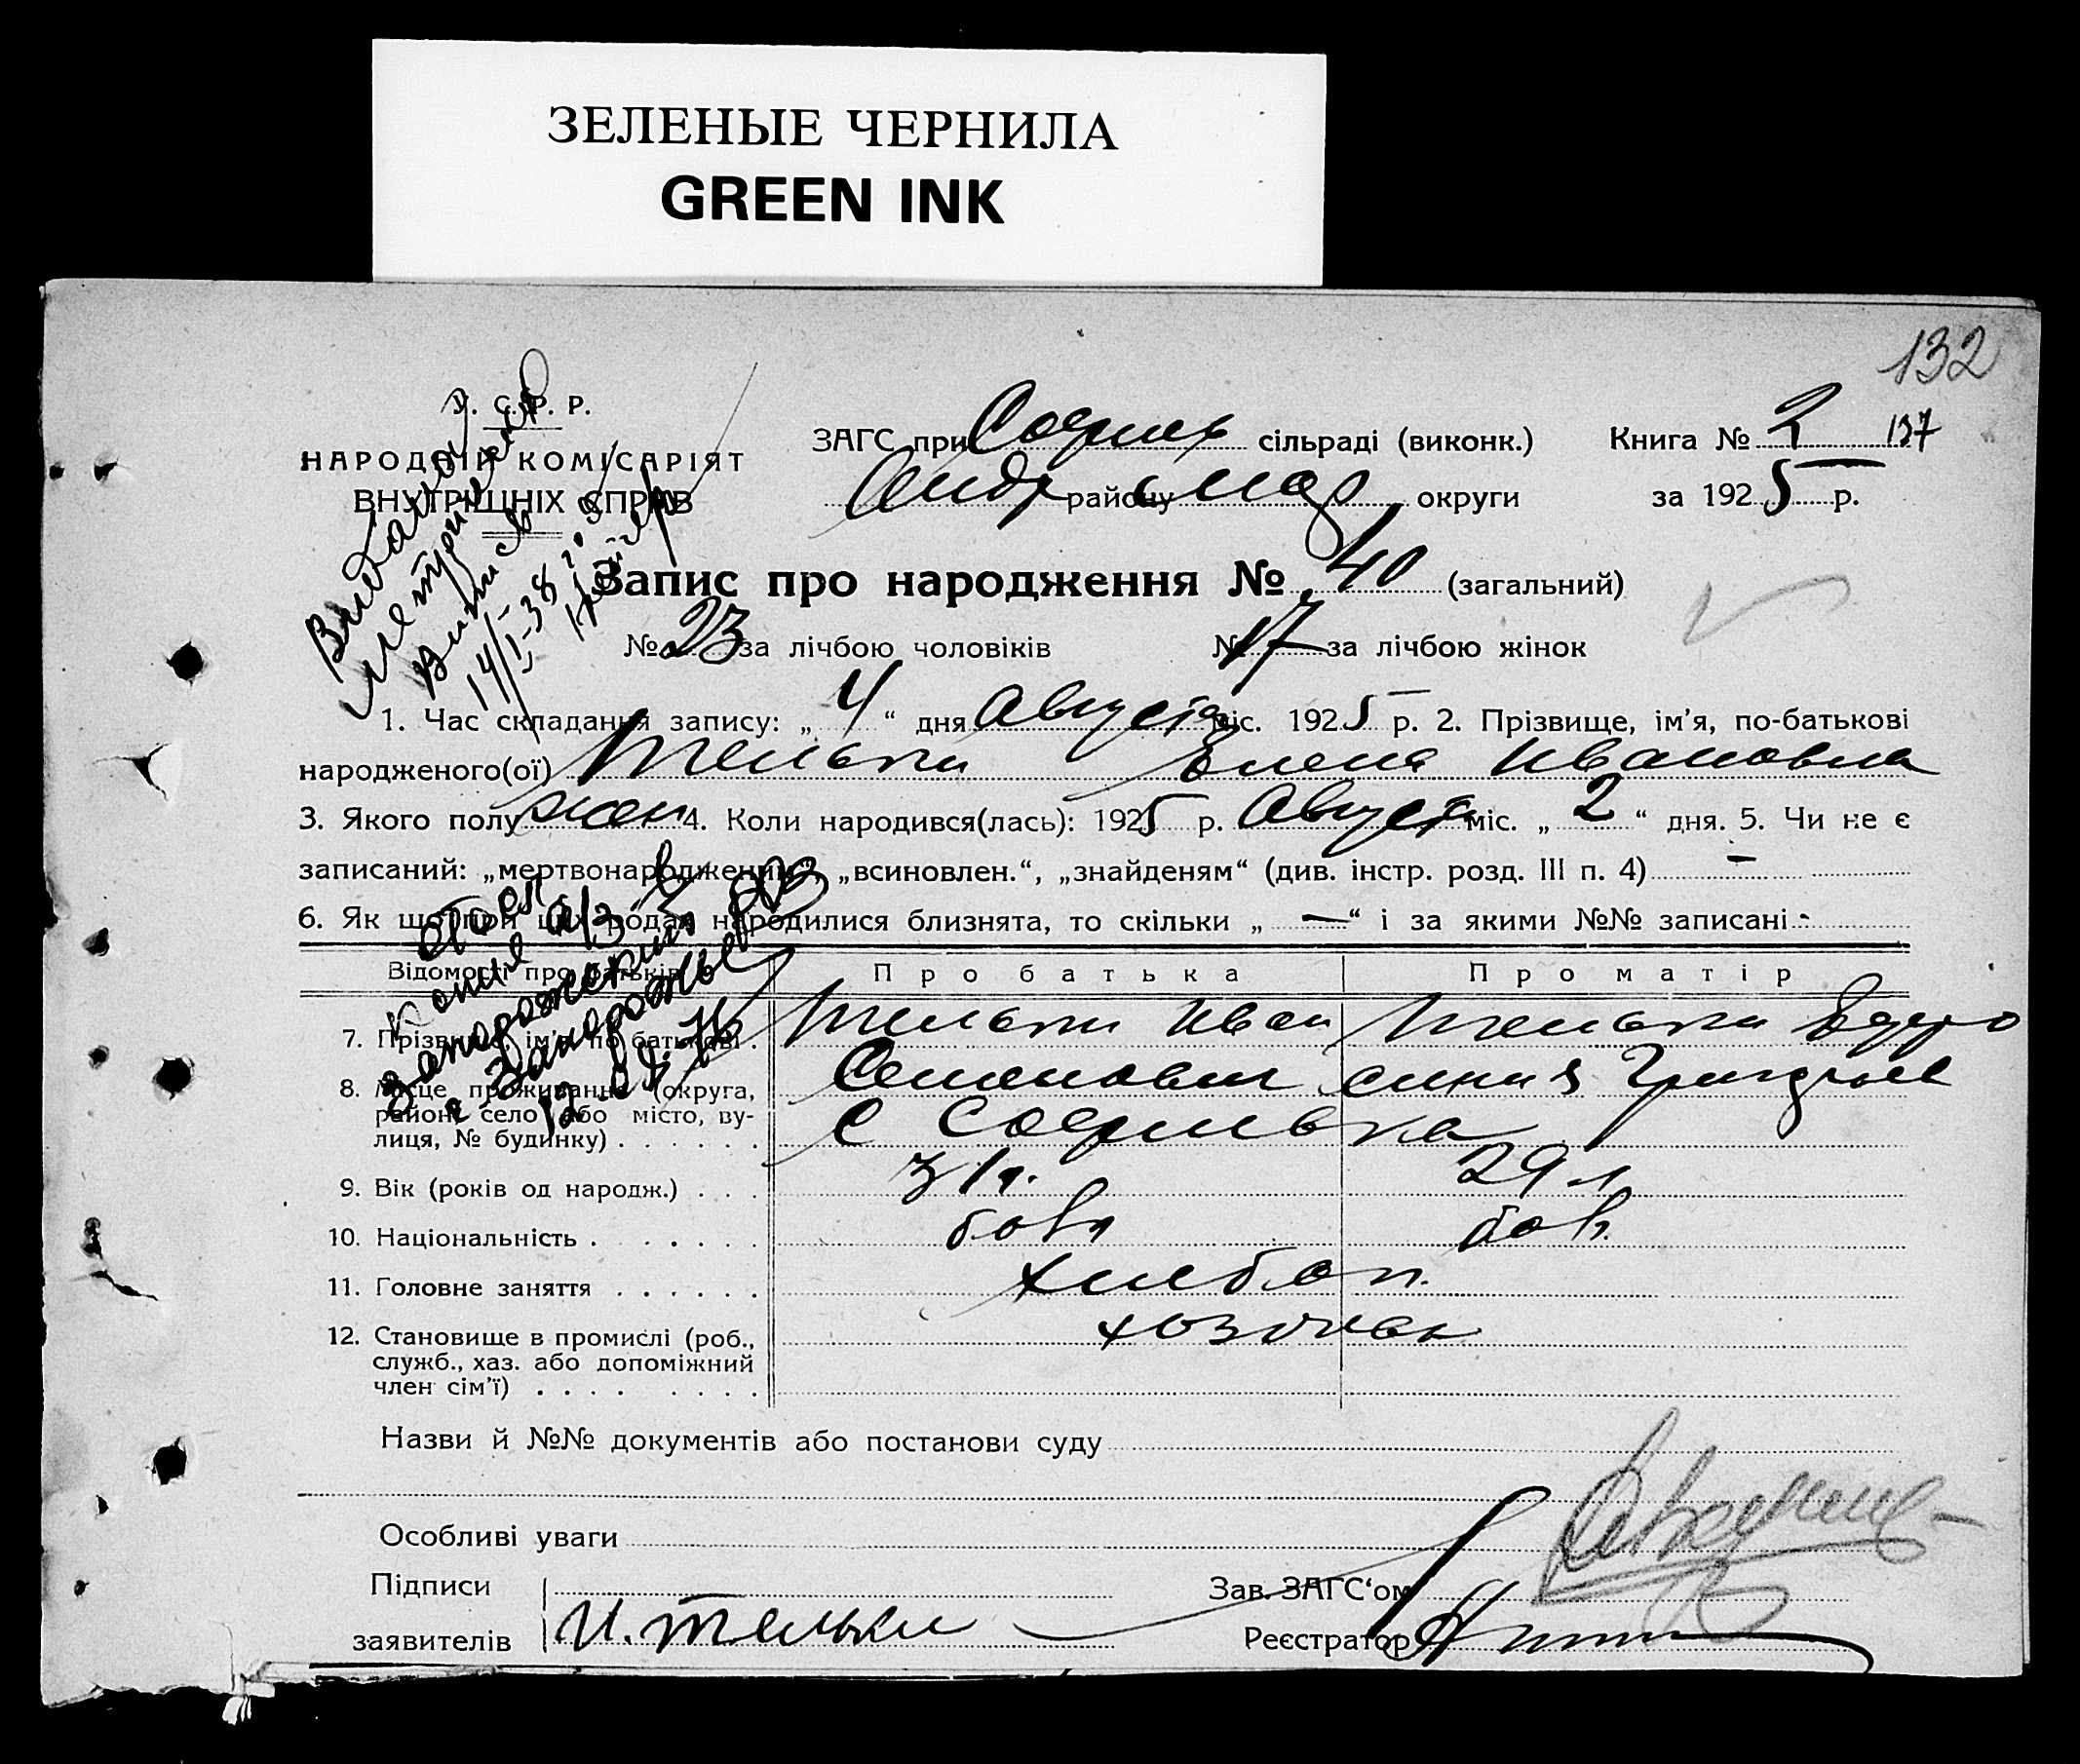 ЗЕЛЕНЫЕ ЧЕРНИЛА
GREEN INK
132
У. С. Р. Р.
НАРОДНІЙ КОМІСАРІЯТ
ВНУТРІШНІХ СПРАВ
ЗАГС при Софиев сільраді (виконк.)
Книга № 2 137
Андр району округи
за 1925 р.
Запис про народження № 40 (загальний)
№ 23 за лічбою чоловіків № 17 за лічбою жінок
Видано
метри
Випись
14/I-38
1. Час складання запису: „ 4 “ дня Августа міс. 1925 р. 2. Прізвище, ім’я, по-батькові
народженого(ої) Тельки Елена Ивановна
3. Якого полу жен 4. Коли народився(лась): 1925 р. Августа міс. „ 2 “ дня. 5. Чи не є
записаний: „мертвонародженим“, „всиновлен.“, „знайденям“ (див. інстр. розд. III п. 4) -
6. Як що при цих родах народилися близнята, то скільки „ — “ і за якими №№ записані -
Відомості про батьків Про батька Про матір
7. Прізвище, ім’я, по батькові . Тельки Иван Тельки Евдо
Семенович Григорьев
8. Місце проживання (округа,
район, село або місто, ву-
лиця, № будинку) . . . . . . с Софиевка
9. Вік (років од народж.) . . . 31 л. 29 л
10. Національність . . . . . . . болг бол.
11. Головне заняття . . . . . . хлебоп.
12. Становище в промислі (роб.,
служб., хаз. або допоміжний
член сім’ї) . . . . . . . . хозяева
копия
запорожский
Запорожье
Назви й №№ документів або постанови суду
Особливі уваги
Підписи
заявителів И. Тельки
Зав. ЗАГС‘ом
Реєстратор